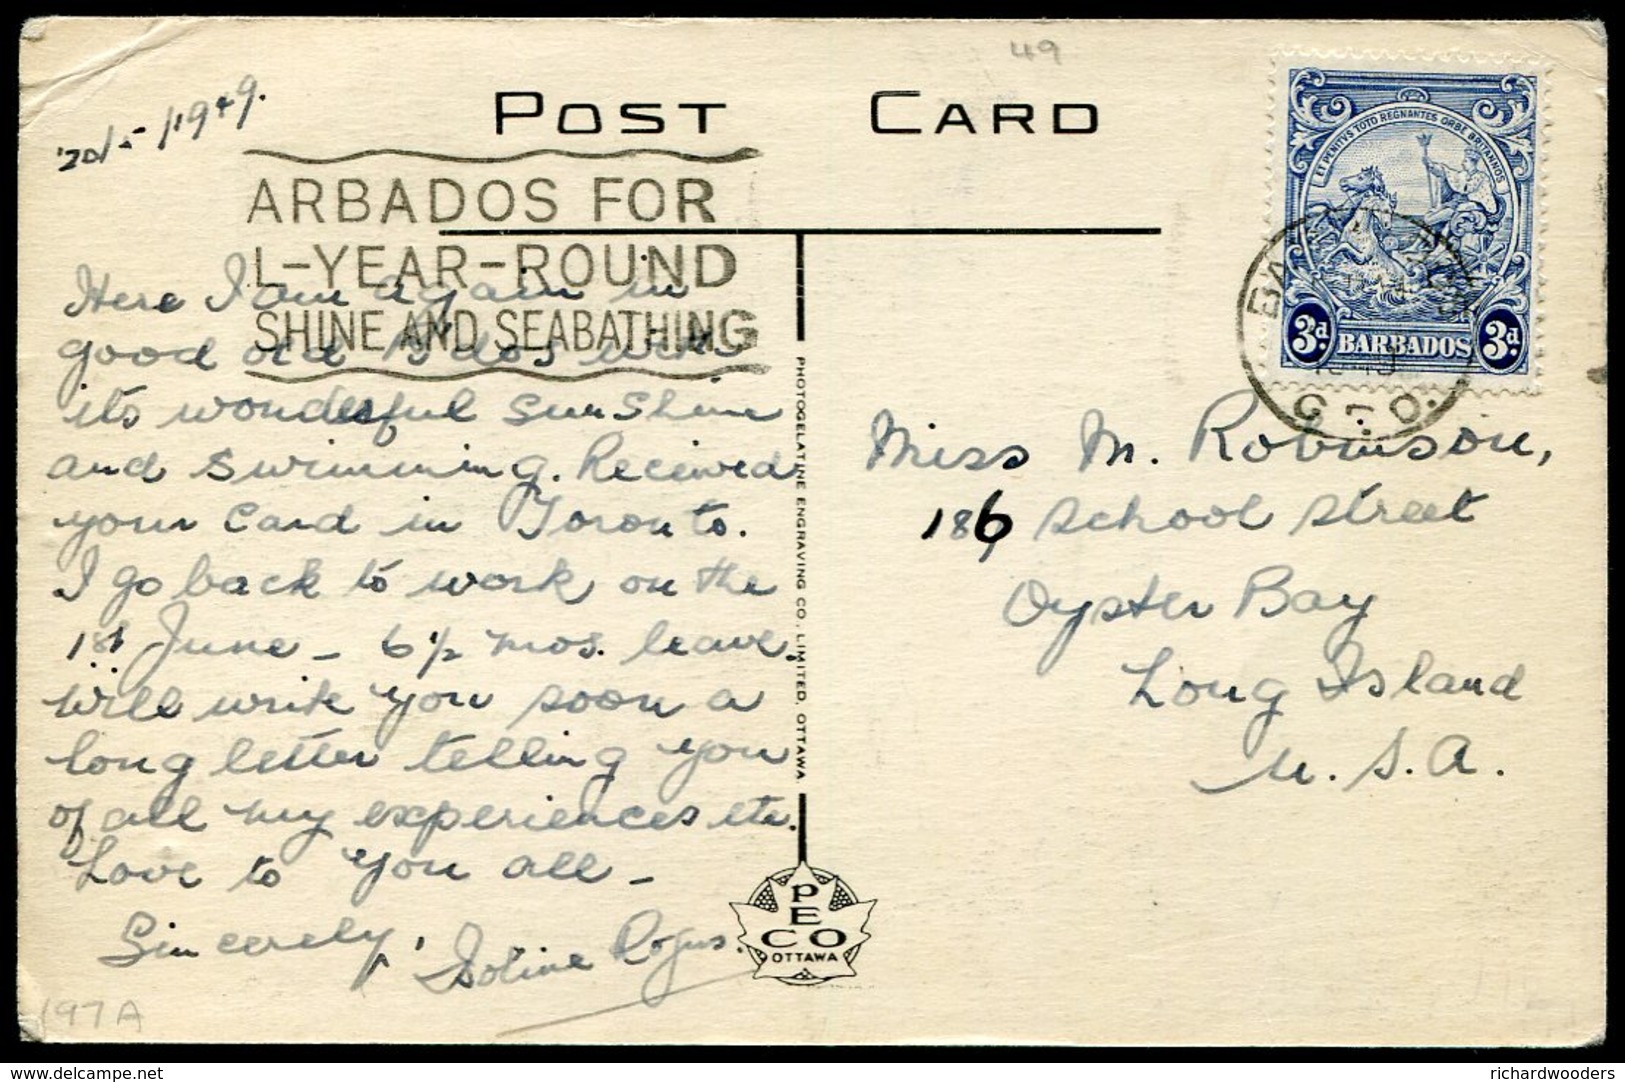 49
POST CARD
20/5/1949.
ARBADOS FOR
L-YEAR-ROUND
SHINE AND SEABATHING
ET PENITVS TOTO REGNANTES ORBE BRITANNOS
3d BARBADOS 3d
G.P.O.
Here I am again in
good old B'dos with
its wonderful sunshine
and swimming. Received
your card in Toronto.
I go back to work on the
1st June - 6 1/2 mos. leave.
Will write you soon a
long letter telling you
of all my experiences etc.
Love to you all -
Sincerely,
Miss M. Robinson,
186 School Street
Oyster Bay
Long Island
U.S.A.
PHOTOGELATINE ENGRAVING CO. LIMITED, OTTAWA
PECO
OTTAWA
197A
delcampe.net
richardwooders